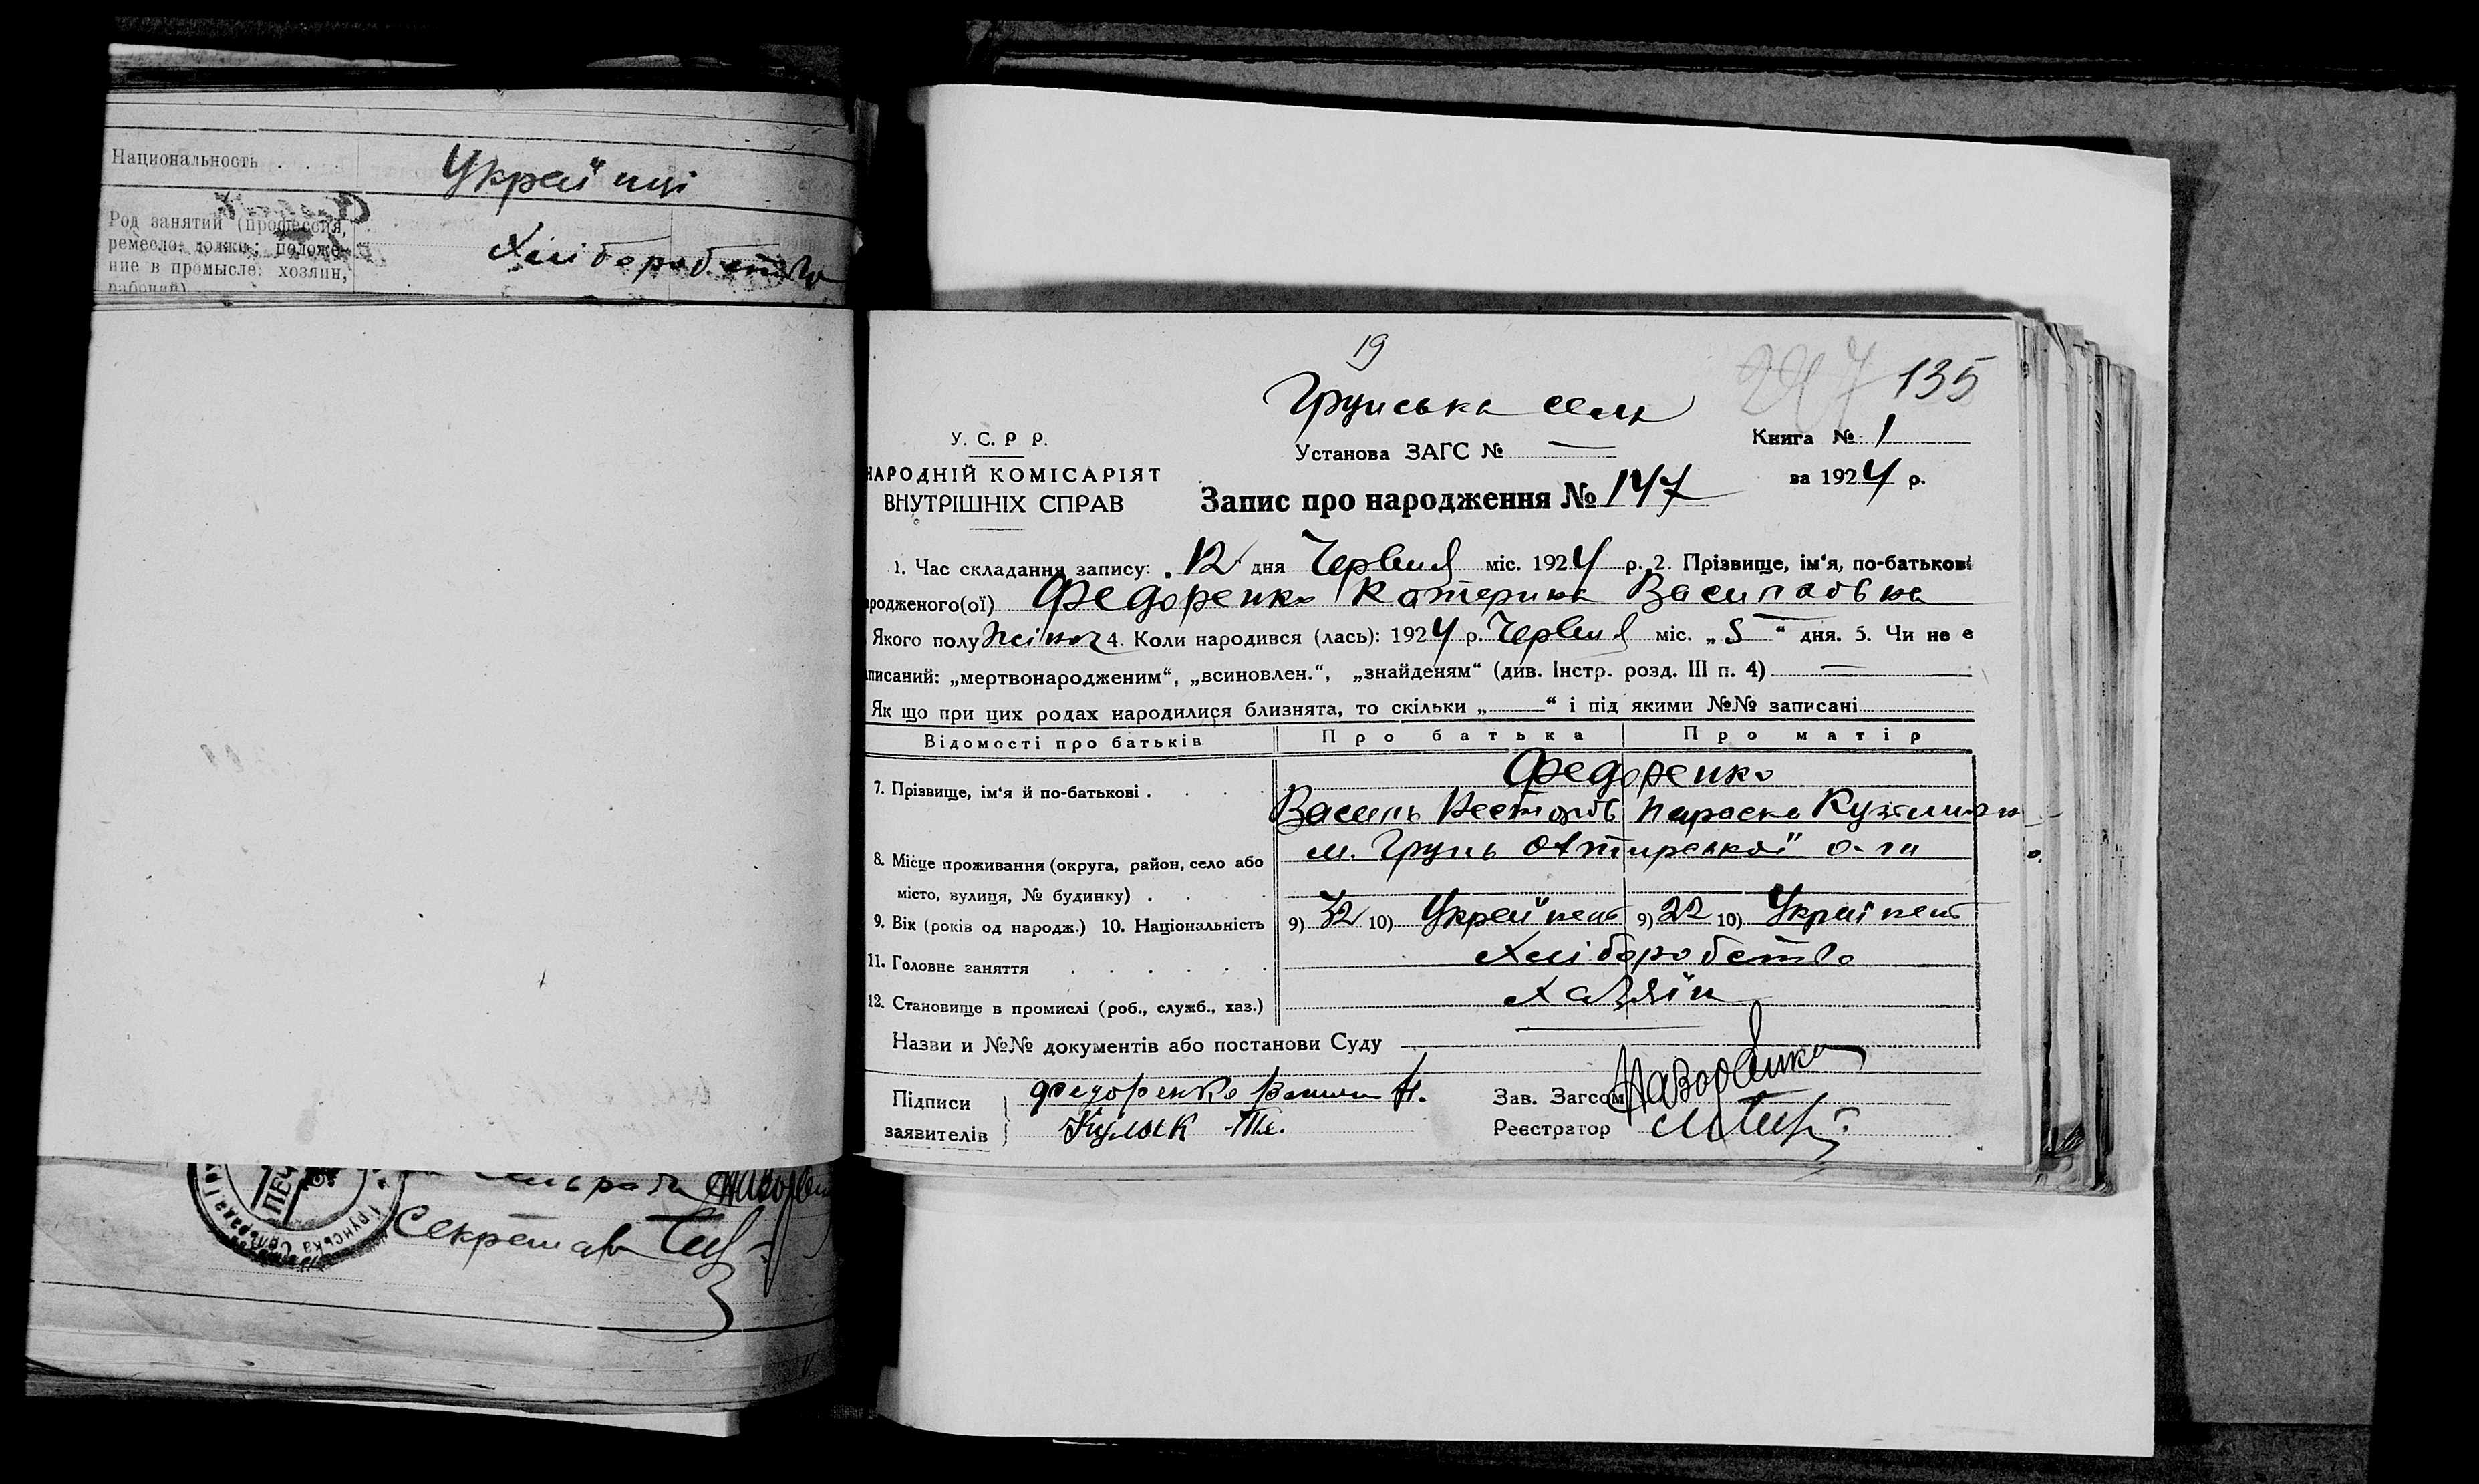 Национальность . . . Українці
Род занятий (профессия,
ремесло, должн.; положе-
ние в промысле: хозяин,
рабочий)
Хліборобство
Секретар
19
247 135
Грунська сель
У. С. Р Р.
Установа ЗАГС №
Книга № 1
НАРОДНІЙ КОМІСАРІЯТ
ВНУТРІШНІХ СПРАВ
за 1924 р.
Запис про народження № 147
1. Час складання запису: 12 дня Червня міс. 1924 р. 2. Прізвище, ім'я, по-батькові
родженого(ої) Федоренко Катерина Василовна
Якого полу жіноч 4. Коли народився (лась): 1924 р. Червня міс. „5“ дня. 5. Чи не є
писаний: „мертвонародженим“, „всиновлен.“, „знайденям“ (див. Інстр. розд. III п. 4)
Як що при цих родах народилися близнята, то скільки „ “ і під якими №№ записані
Відомості про батьків Про батька Про матір
Федоренко
7. Прізвище, ім'я й по-батькові . . . .
Василь Несторов Параска Кузьминовн
8. Місце проживання (округа, район, село або
місто, вулиця, № будинку) . . . .
м. Грунь Охтирської о-ги
9. Вік (років од народж.) 10. Національність 9) 32 10) Українец 9) 22 10) Українец
11. Головне заняття . . . . . . Хліборобство
12. Становище в промислі (роб., служб., хаз.) Хазяїн
Назви и №№ документів або постанови Суду
Підписи
заявителів
Федоренко Василь Н.
Кулык
Зав. Загсом
Реєстратор